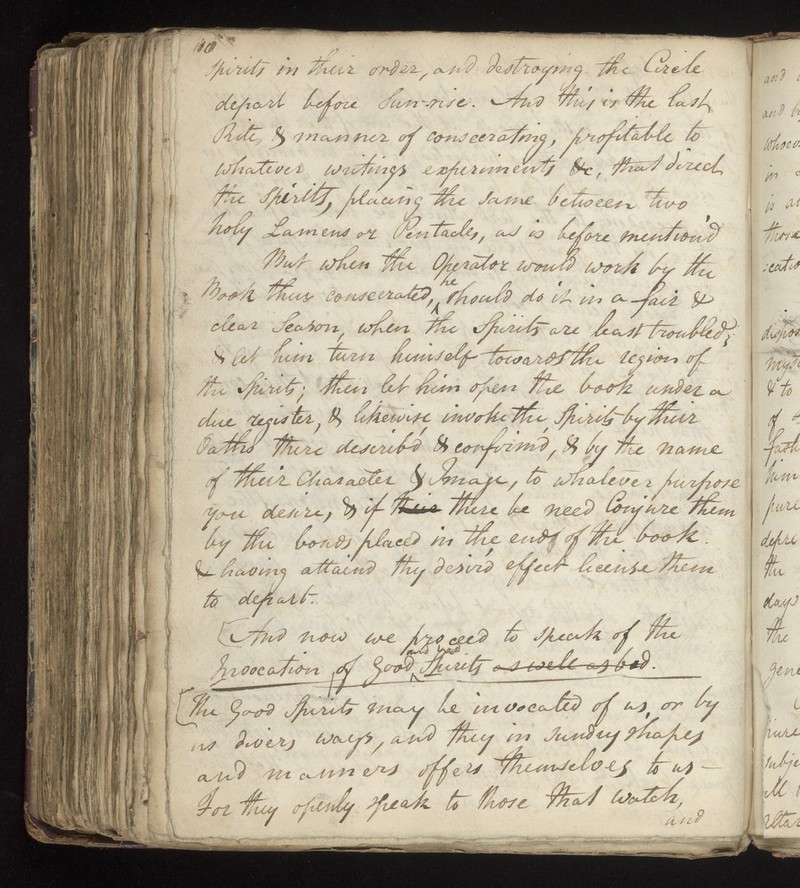 spirits in their order, and destroying the Circle
depart before Sun-rise. And this is the last
Rite, & manner of consecrating, profitable to
whatever writings experiments &c, that direct
the spirits, placing the same between two
holy Lamens or Pentacles, as is before mention'd
But when the Operator would work by the
Book thus consecrated, he should do it in a fair &
clear Season, when the Spirits are least troubled;
& let him turn himself towards the region of
the Spirits; then let him open the book under a
due register, & likewise invoke the Spirits by their
Oaths there describ'd & confirm'd, & by the name
of their Character & Image, to whatever purpose
you desire, & if their there be need Conjure them
by the bonds placed in the end of the book.
& having attaind thy desir'd effect license them
to depart.
[And now we proceed to speak of the
Invocation of Good and bad Spirits as well as bad.
[The Good Spirits may be invocated of us, or by
us divers ways, and they in sundry shapes
and manners offers themselves to us —
For they openly speak to those that watch,
and
and
and
whoev
in
is
those
:catio
dispos
& to
of
him
pure
the
days
the
gene
subje